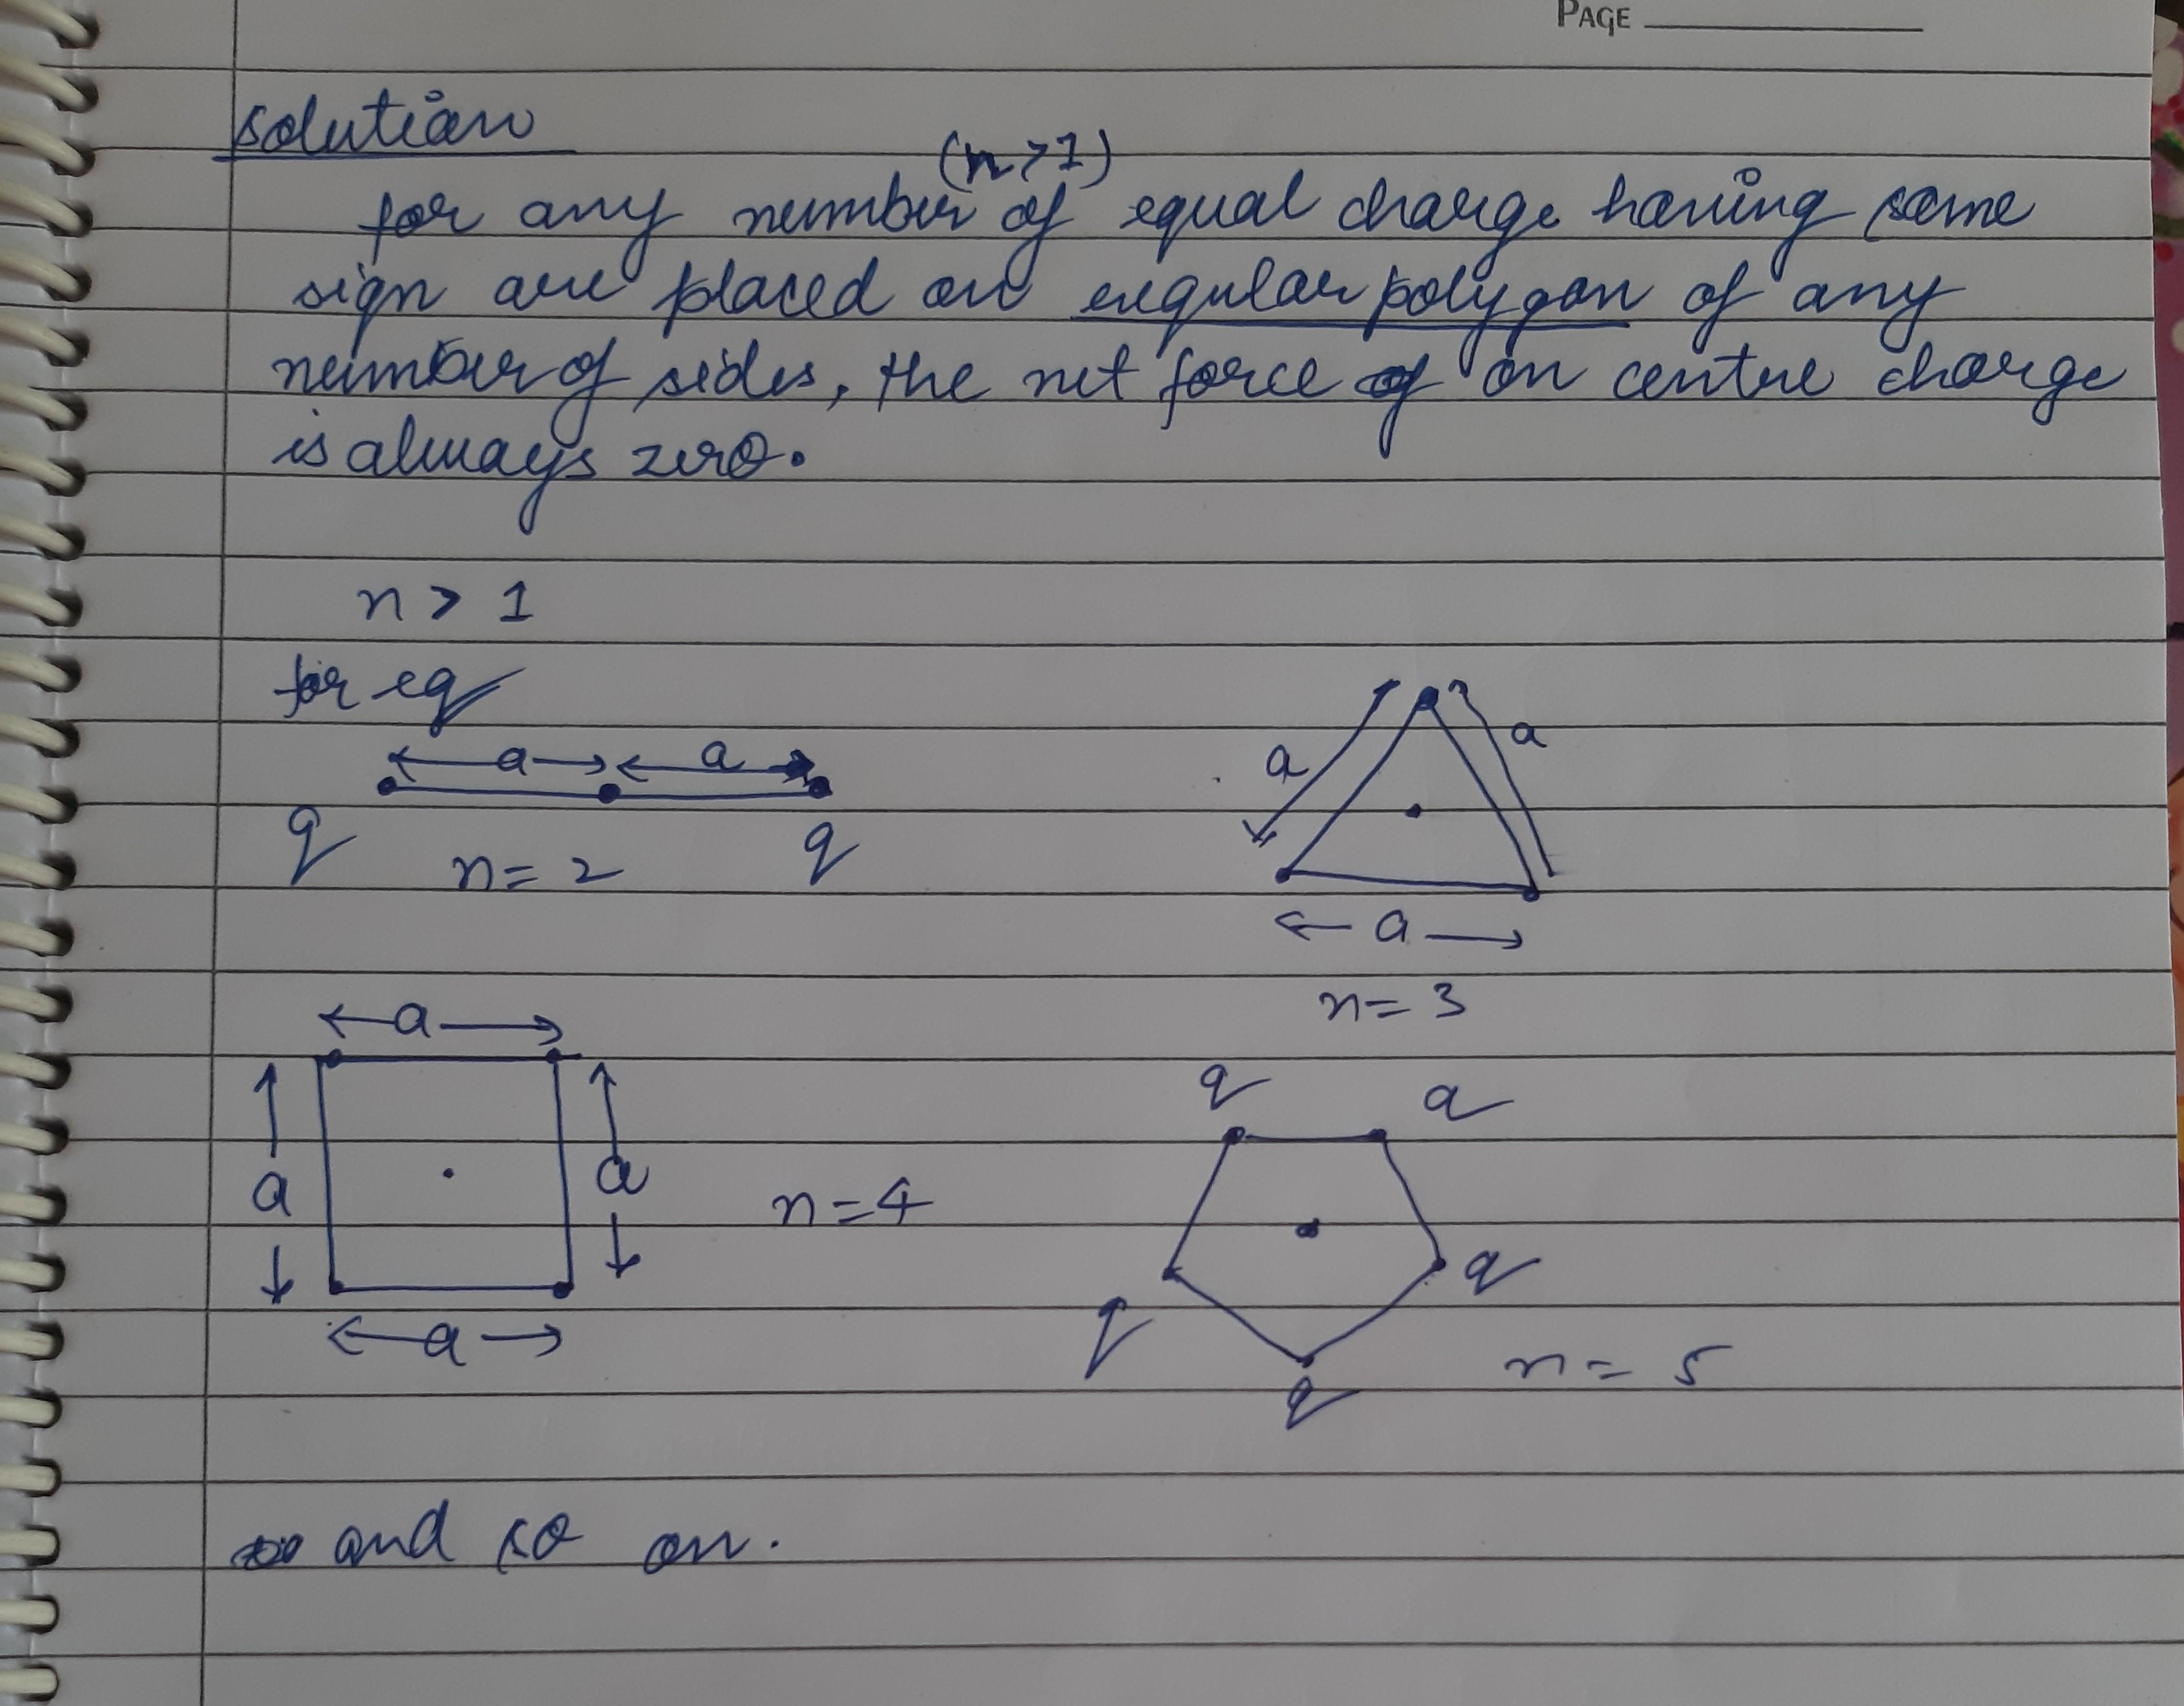 PAGE
solution
(n>1)
for any number of equal charge having same
sign are placed on regular polygon of any
number of sides, the net force of on centre charge
is always zero.
n > 1
for eg
a a
q n=2 q
a a
a
n=3
a
a a
n=4
a
q q
q q
q
n=5
and so on.